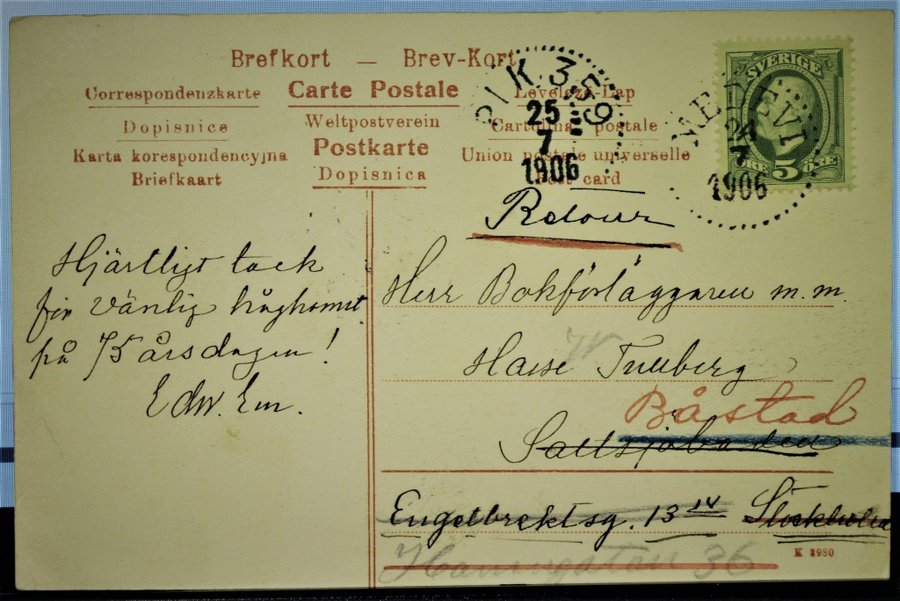 Brefkort — Brev-Kort
Correspondenzkarte Carte Postale Levelezö-Lap
Dopisnice Weltpostverein Cartolina postale
Karta korespondencyjna Postkarte Union postale universelle
Briefkaart Dopisnica Post card
PIK. 359
25
7
1906
SVERIGE
5
ÖRE ÖRE
MEDEVI
7
1906
Retour
Hjärtligt tack
för vänlig håghomst
på 75 årsdagen!
Edw. Em.
Herr Bokförläggaren m.m.
Hasse Tullberg
Båstad
Saltsjöbaden
Engelbrektsg. 13 Stockholm
Hamngatan 36
K 3980